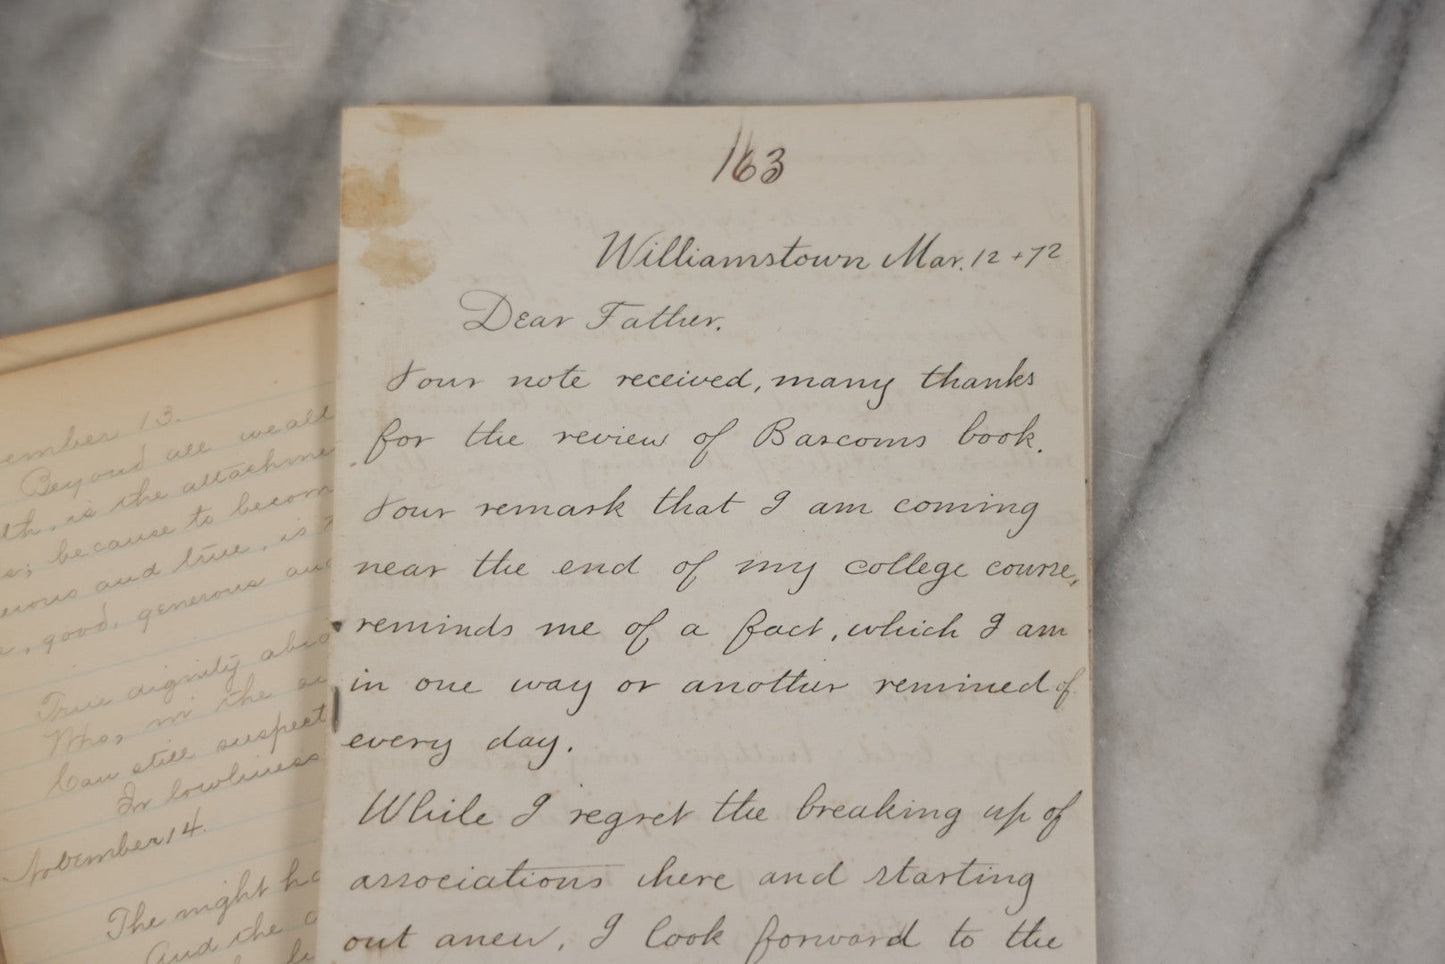 163
Williamstown Mar. 12 + 72
Dear Father.
Your note received, many thanks
for the review of Bascoms book.
Your remark that I am coming
near the end of my college course,
reminds me of a fact, which I am
in one way or another remined of
every day.
While I regret the breaking up of
associations here and starting
out anew, I look forward to the
ember 13.
Beyond all wealt
lth, is the attachme
e; because to becom
erous and true, is
e, good, generous and
True dignity abid
Who, in the
Can still suspect
In lowliness
November 14.
The night ha
And the